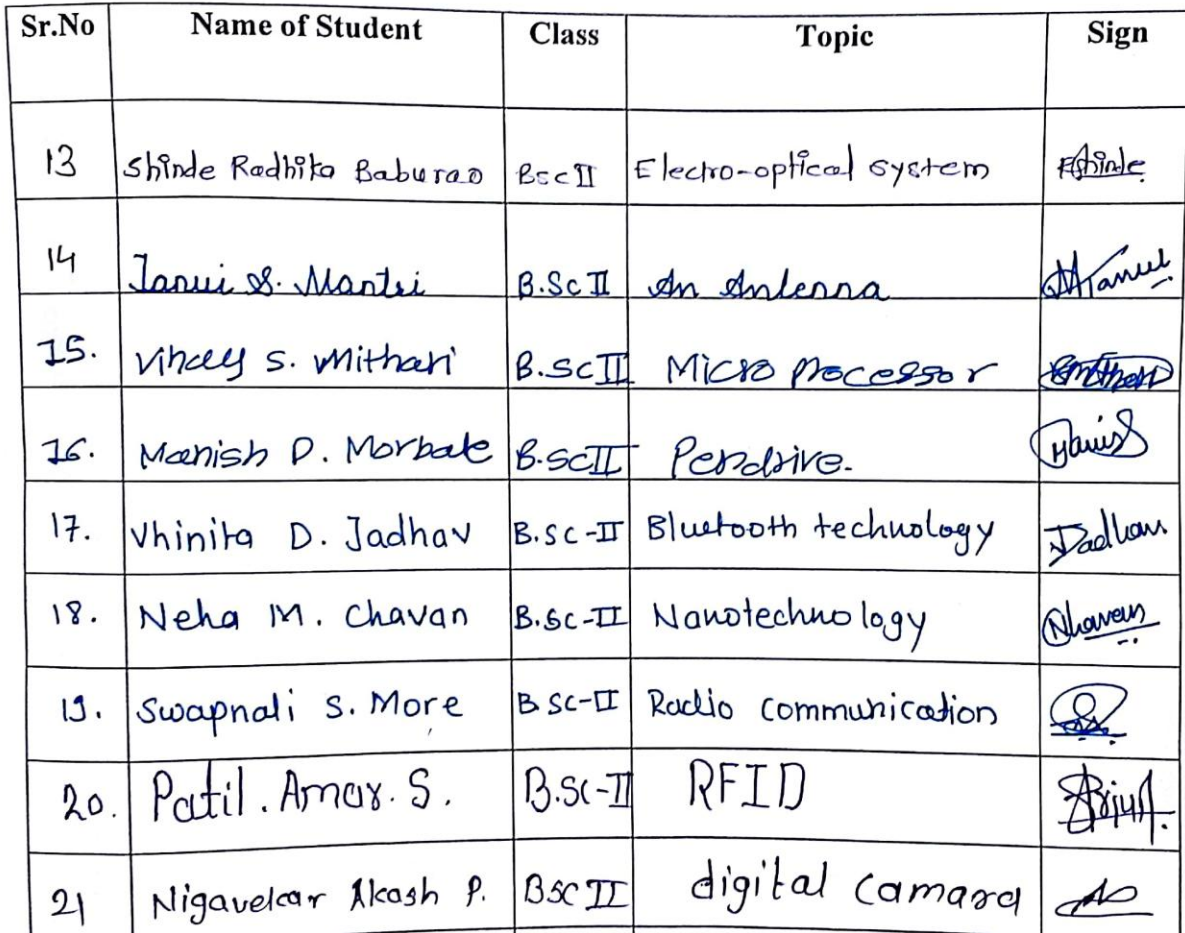 Sr.No Name of Student Class Topic Sign
13 Shinde Radhika Baburao BscII Electro-optical system Rshinde
14 Janvi S. Mantri B.Sc II An Antenna
15. Vinay S. Mithari B.Sc II Micro processor
16. Manish D. Morbale B.Sc II Pendrive.
17. Vhinita D. Jadhav B.Sc-II Bluetooth technology Jadhav
18. Neha M. Chavan B.Sc-II Nanotechnology
19. Swapnali S. More B Sc-II Radio communication
20. Patil. Amar. S. B.Sc-II RFID
21 Nigavekar Akash P. BSC II digital camara